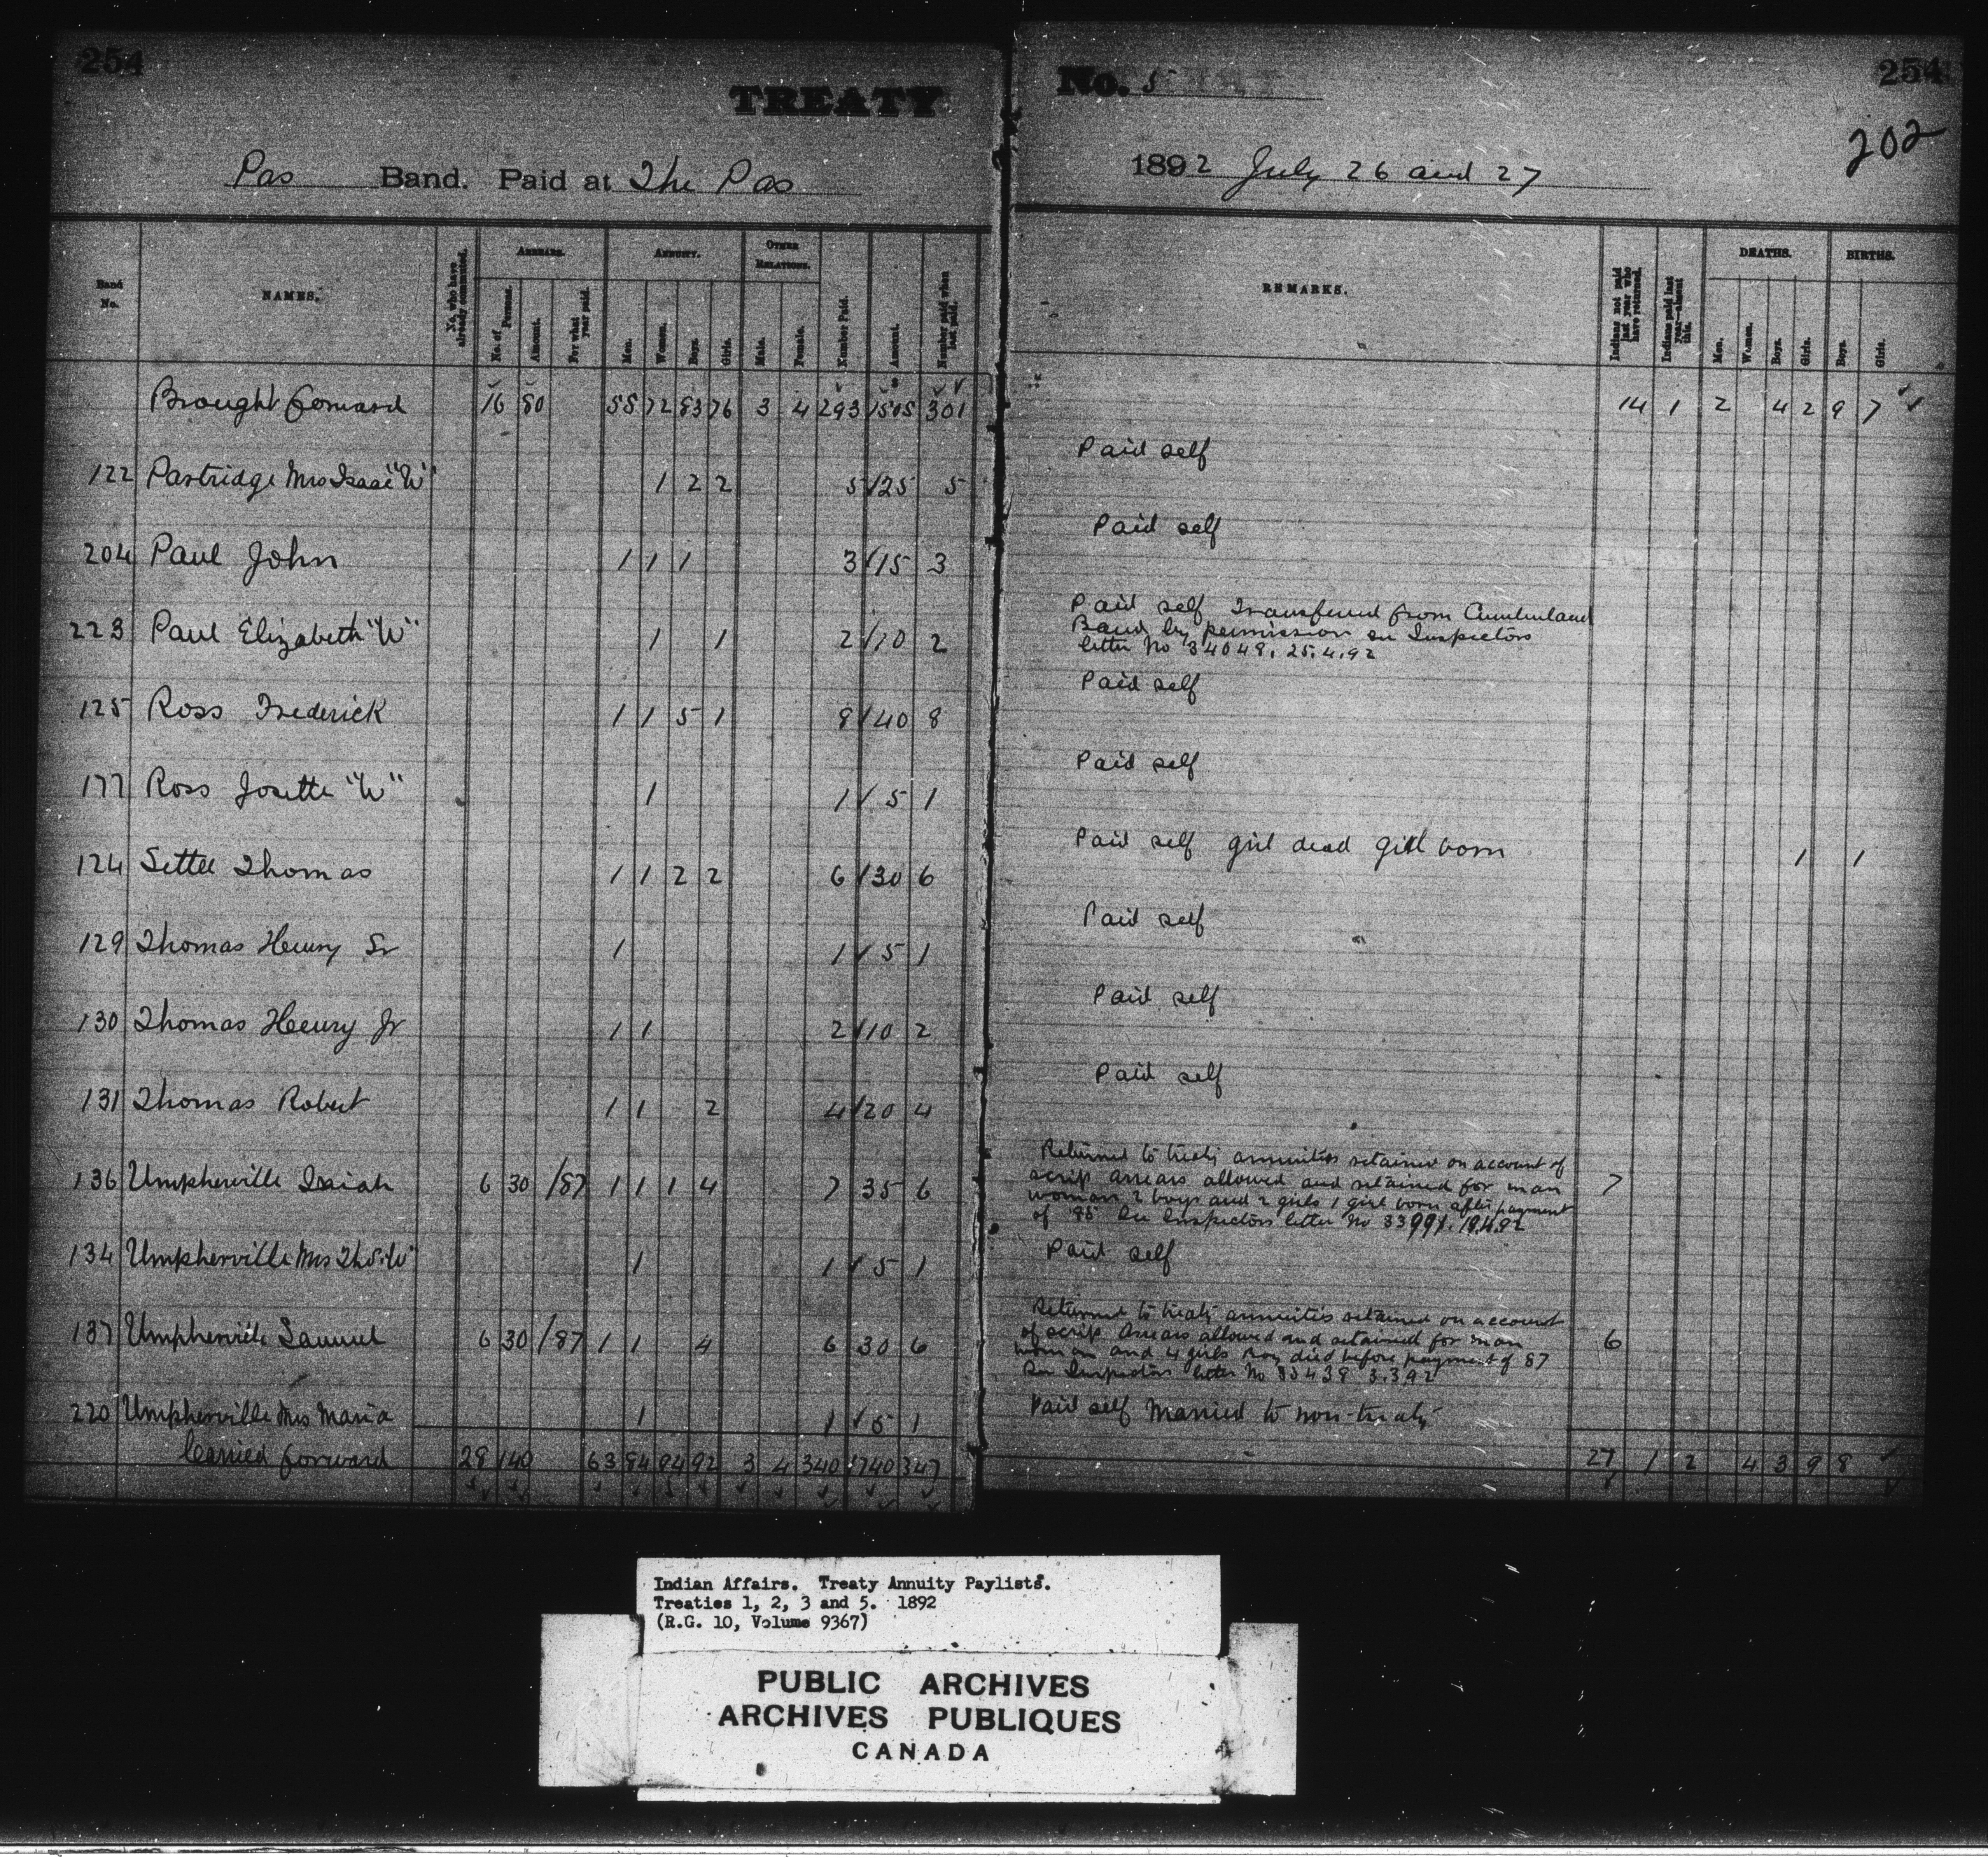 254
254
TREATY No. 5
202
Pas Band. Paid at The Pas 1892 July 26 and 27
Band No. NAMES. No. who have already commuted. ARREARS. No. of Persons. Amount. For what year paid. ANNUITY. Men. Women. Boys. Girls. OTHER RELATIONS. Male. Female. Number Paid. Amount. Number paid when last paid. REMARKS. Indians not paid last year who have returned. Indians paid last year—absent this. DEATHS. Men. Women. Boys. Girls. BIRTHS. Boys. Girls.
Brought forward 16 80 55 72 83 76 3 4 293 1505 301 14 1 2 4 2 9 7
122 Partridge Mrs Isaac "W" 1 2 2 5 25 5 Paid self
204 Paul John 1 1 1 3 15 3 Paid self
223 Paul Elizabeth "W" 1 1 2 10 2 Paid self Transferred from Cumberland
Band by permission see Inspectors
letter No 34048. 25.4.92
125 Ross Frederick 1 1 5 1 8 40 8 Paid self
177 Ross Josette "W" 1 1 5 1 Paid self
124 Settee Thomas 1 1 2 2 6 30 6 Paid self girl dead girl born 1 1
129 Thomas Henry Sr 1 1 5 1 Paid self
130 Thomas Henry Jr 1 1 2 10 2 Paid self
131 Thomas Robert 1 1 2 4 20 4 Paid self
136 Umpherville Isaiah 6 30 /87 1 1 1 4 7 35 6 Returned to treaty annuities retained on account of 7
scrip arrears allowed and retained for man
woman 2 boys and 2 girls 1 girl born after payment
of See Inspectors letter No
134 Umpherville Mrs Thos "W" 1 1 5 1 Paid self
137 Umpherville Samuel 6 30 /87 1 1 4 6 30 6 Returned to treaty annuities retained on account 6
of scrip Arrears allowed and retained for man
woman and 4 girls Boy died before payment of 87
See Inspectors letter No 3.3.92
220 Umpherville Mrs Maria 1 1 5 1 Paid self Married to non-treaty
Carried forward 28 140 63 84 94 92 3 4 340 1740 347 27 1 2 4 3 9 8
Indian Affairs. Treaty Annuity Paylists.
Treaties 1, 2, 3 and 5. 1892
(R.G. 10, Volume 9367)
PUBLIC ARCHIVES
ARCHIVES PUBLIQUES
CANADA